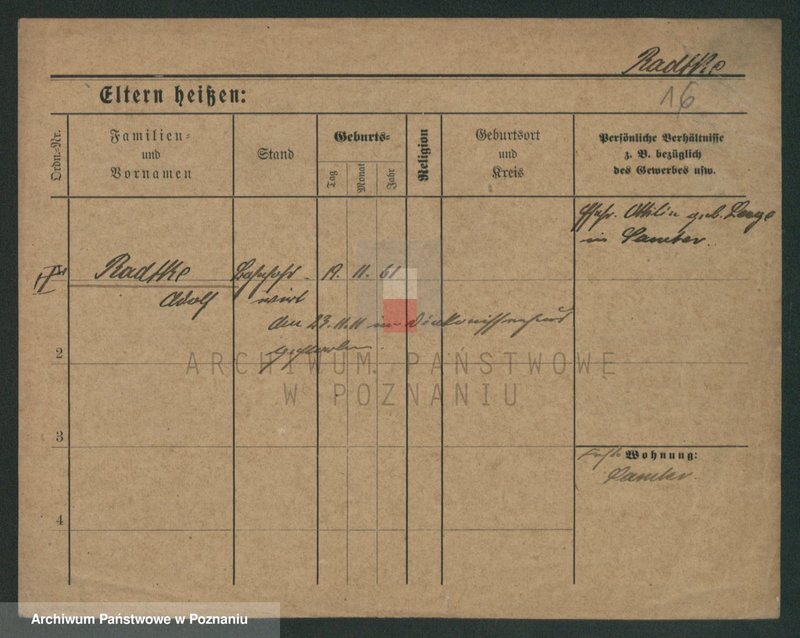 Radtke
16
Eltern heißen:
Ordn.-Nr.
Familien-
und
Vornamen
Stand
Geburts-
Tag
Monat
Jahr
Religion
Geburtsort
und
Kreis
Persönliche Verhältnisse
z. B. bezüglich
des Gewerbes usw.
Ehefr. Ottilie geb. Lange
in Samter.
Radtke Bahnhof- 19. 11. 61
Adolf wirt
den 23.11.11 im Diakonissenhaus
gestorben.
2
ARCHIWUM PAŃSTWOWE
W POZNANIU
3
Wohnung:
Samter
4
Archiwum Państwowe w Poznaniu